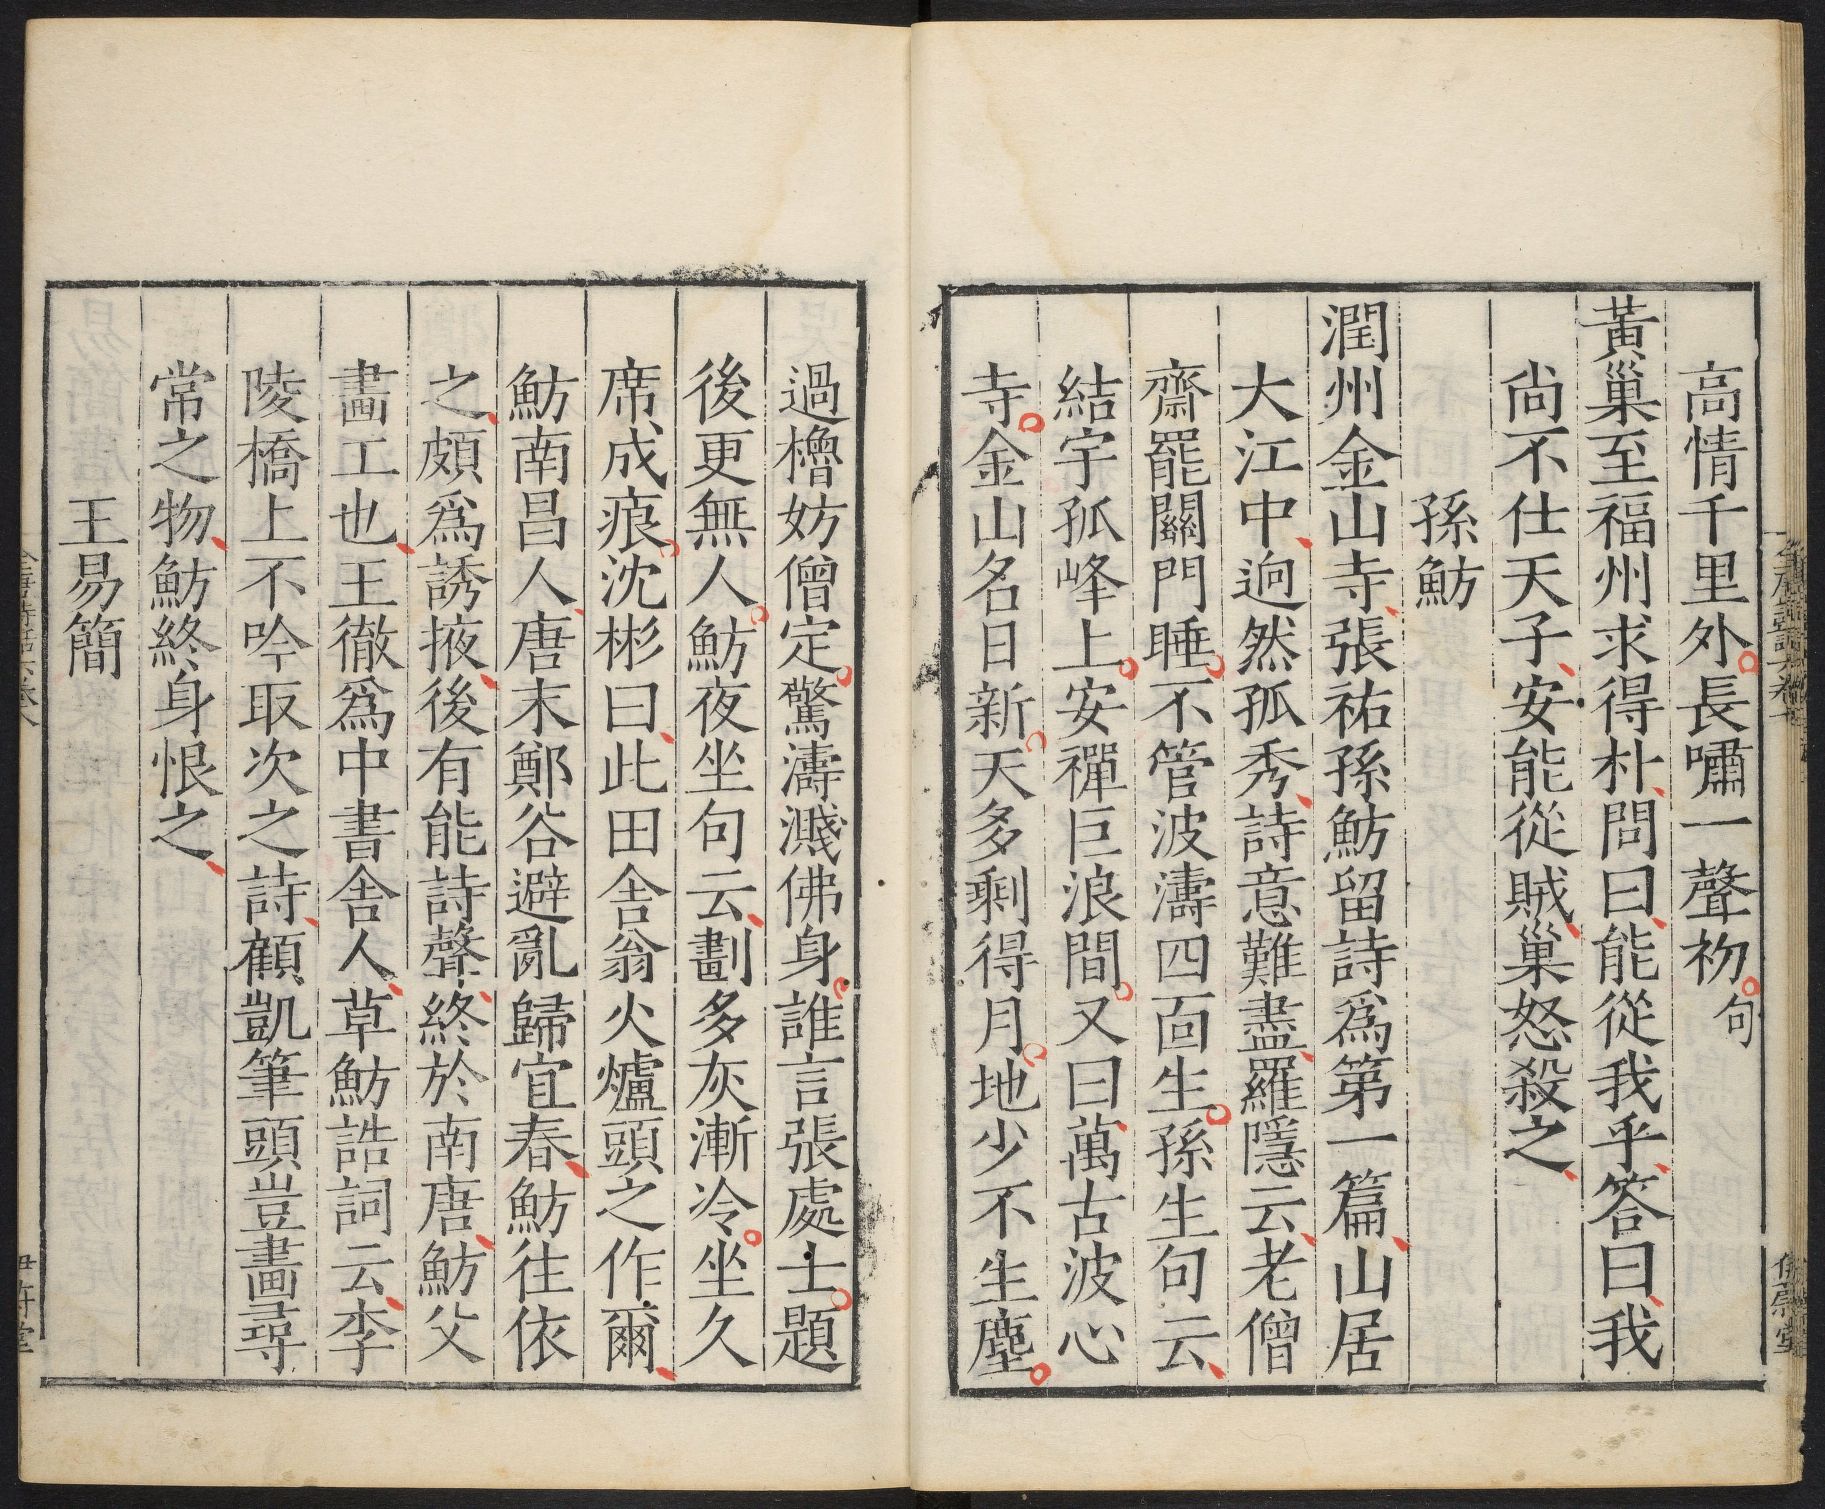 高情千里外長嘯一聲初句
黃巢至福州求得朴問曰能從我乎答曰我
尚不仕天子安能從賊巢怒殺之
孫魴
潤州金山寺張祐孫魴留詩爲第一篇山居
大江中逈然孤秀詩意難盡羅隱云老僧
齋罷關門睡不管波濤四面生孫生句云
結宇孤峰上安禪巨浪間又曰萬古波心
寺金山名日新天多剩得月地少不生塵
過櫓妨僧定驚濤濺佛身誰言張處士題
後更無人魴夜坐句云劃多灰漸冷坐久
席成痕沈彬曰此田舍翁火爐頭之作爾
魴南昌人唐末鄭谷避亂歸宜春魴往依
之頗爲誘掖後有能詩聲終於南唐魴父
畵工也王徹爲中書舍人草魴誥詞云李
陵橋上不吟取次之詩顧凱筆頭豈畵尋
常之物魴終身恨之
王易簡